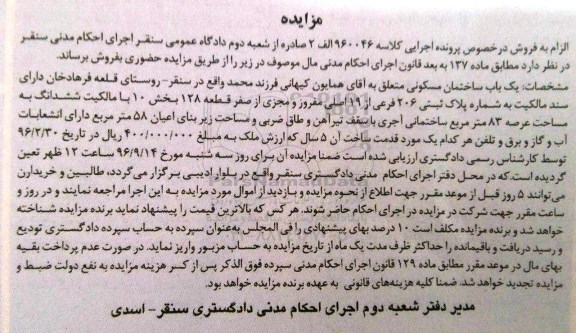 مزایده
الزام به فروش درخصوص پرونده اجرایی کلاسه ۹۶۰۰۴۶ الف ۲ صادره از شعبه دوم دادگاه عمومی سنقر اجرای احکام مدنی سنقر
در نظر دارد مطابق ماده ۱۳۷ به بعد قانون اجرای احکام مدنی مال موصوف در زیر را از طریق مزایده حضوری بفروش برساند.
مشخصات: یک باب ساختمان مسکونی متعلق به آقای همایون کیهانی فرزند محمد واقع در سنقر-روستای قلعه فرهادخان دارای
سند مالکیت به شماره پلاک ثبتی ۲۰۶ فرعی از ۱۹ اصلی مفروز و مجزی از صفر قطعه ۱۲۸ بخش ۱۰ با مالکیت ششدانگ به
مساحت عرصه ۸۳ متر مربع ساختمانی آجری با سقف تیرآهن و طاق ضربی و مساحت زیر بنای اعیان ۵۸ متر مربع دارای انشعابات
آب و گاز و برق و تلفن هر کدام یک مورد قدمت ساخت آن ۵ سال که ارزش ملک به مبلغ ۴۰۰/۰۰۰/۰۰۰ ریال در تاریخ ۹۶/۲/۳۰
توسط کارشناس رسمی دادگستری ارزیابی شده است ضمنا مزایده آن برای روز سه شنبه مورخ ۹۶/۹/۱۴ ساعت ۱۲ ظهر تعین
گردیده است.که در محل دفتر اجرای احکام مدنی دادگستری سنقر واقع در بلوار ادیبی برگزار می گردد، طالبین و خریدارن
می‌توانند ۵ روز قبل از موعد مقرر جهت اطلاع از نحوه مزایده و بازدید از اموال مورد مزایده به این اجرا مراجعه نمایند و در روز و
ساعت مقرر جهت شرکت در مزایده در اجرای احکام حاضر شوند. هر کس که بالاترین قیمت را پیشنهاد نماید برنده مزایده شناخته
خواهد شد و برنده مزایده مکلف است ۱۰ درصد بهای پیشنهادی را فی المجلس به‌عنوان سپرده به حساب سپرده دادگستری تودیع
و رسید دریافت و باقیمانده را حداکثر ظرف مدت یک ماه از تاریخ مزایده به حساب مزبور واریز نماید. در صورت عدم پرداخت بقیه
بهای مال در موعد مقرر مطابق ماده ۱۲۹ قانون اجرای احکام مدنی سپرده فوق الذکر پس از کسر هزینه مزایده به نفع دولت ضبط و
مزایده تجدید خواهد شد. ضمنا کلیه هزینه‌های قانونی به عهده برنده مزایده خواهد بود.
مدیر دفتر شعبه دوم اجرای احکام مدنی دادگستری سنقر- اسدی